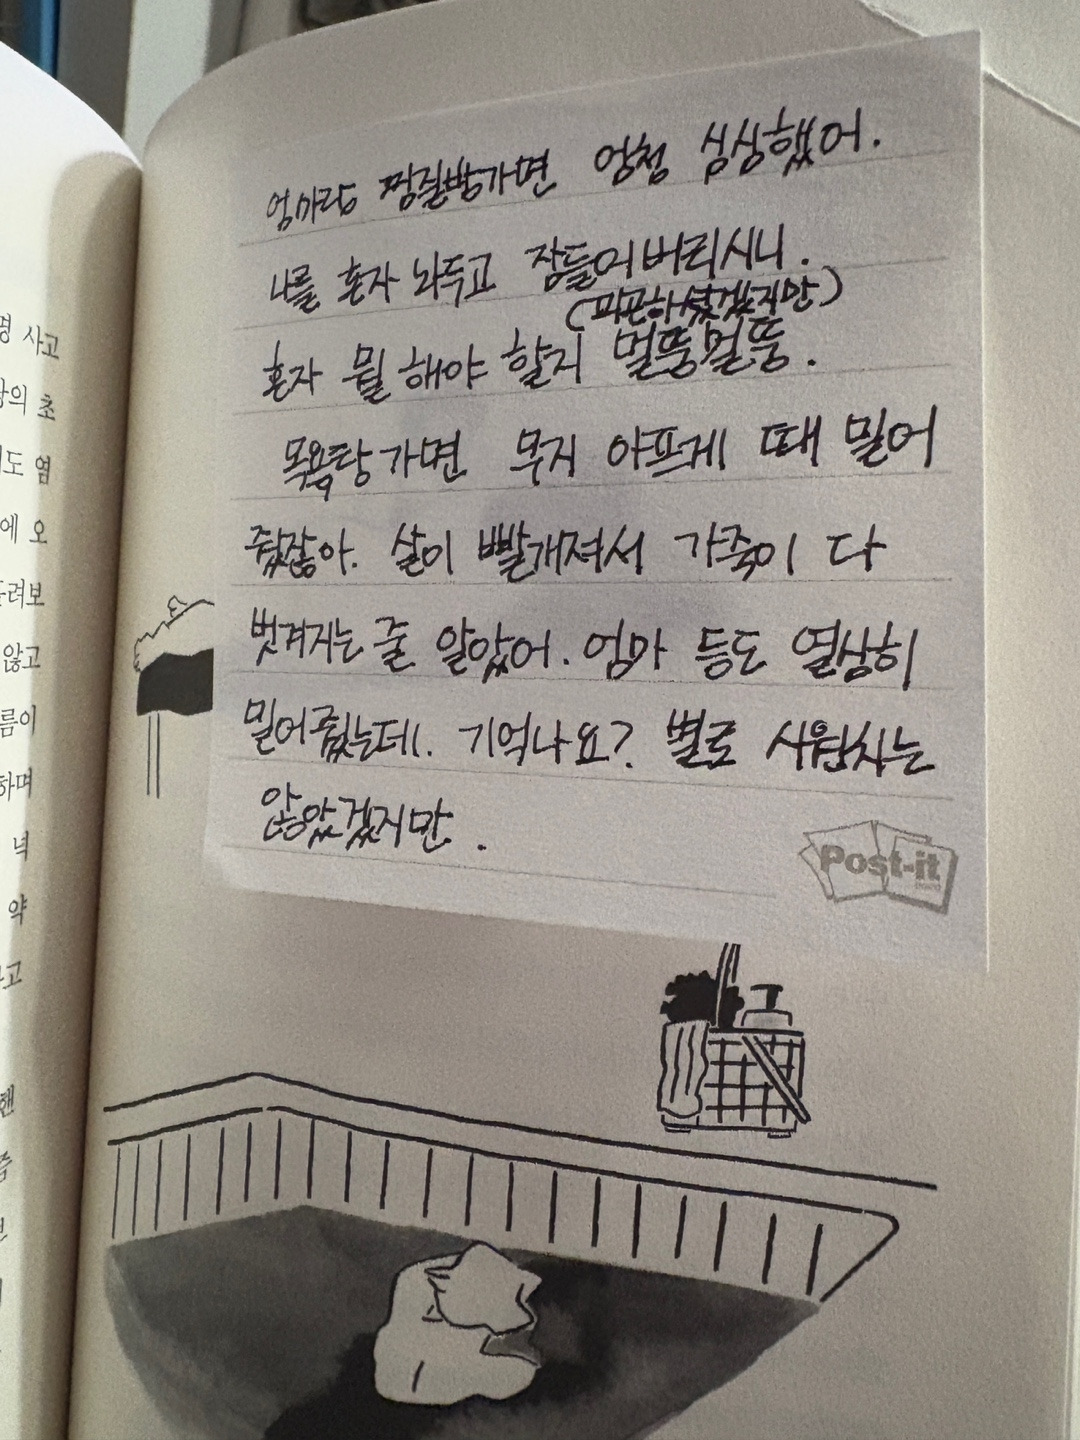 명 사고
의 초
도 염
에 오
들려보
않고
름이
하며
녁
약
고
엄마랑 찜질방가면 엄청 심심했어.
나를 혼자 놔두고 잠들어버리시니.
(피곤하셨겠지만)
혼자 뭘 해야 할지 멀뚱멀뚱.
목욕탕가면 무지 아프게 때 밀어
줬잖아. 살이 빨개져서 가죽이 다
벗겨지는 줄 알았어. 엄마 등도 열심히
밀어줬는데. 기억나요? 별로 시원치는
않았겠지만.
Post-it